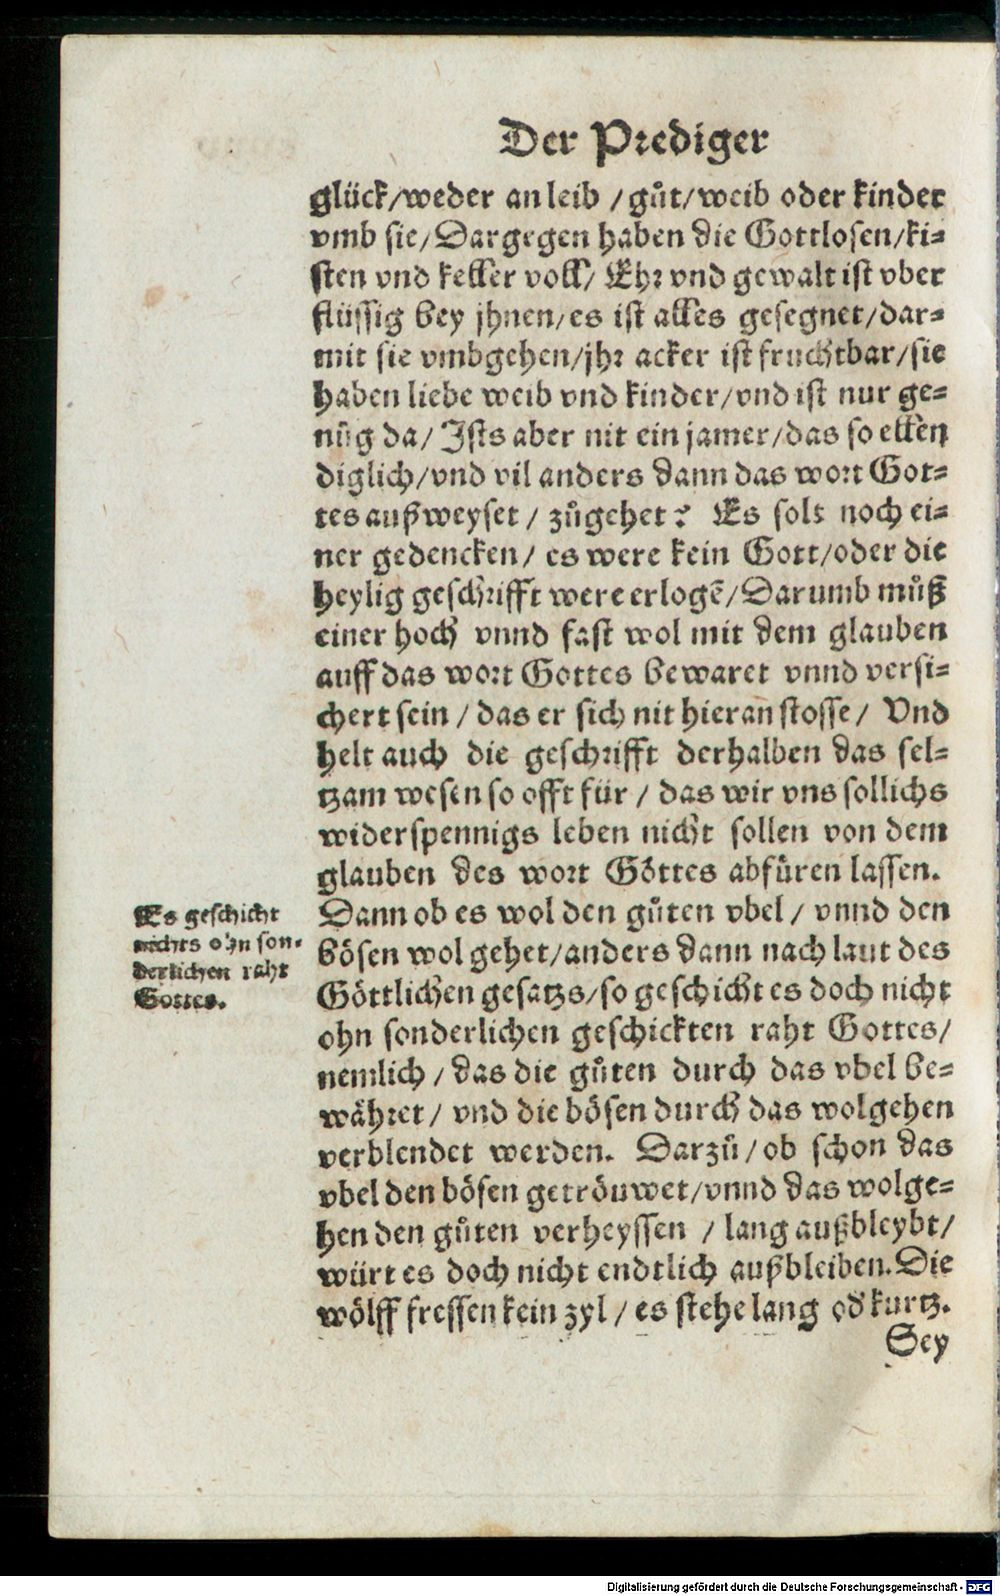 Der Prediger
glück/weder an leib /gůt/weib oder kinder
vmb sie/Dargegen haben die Gottlosen/ki-
sten vnd keller voll/ Ehr vnd gewalt ist vber
flüssig bey jhnen/es ist alles gesegnet/dar-
mit sie vmbgehen/jhr acker ist fruchtbar/sie
haben liebe weib vnd kinder/vnd ist nur ge-
nůg da/ Ists aber nit ein jamer/das so ellen
diglich/vnd vil anders dann das wort Got-
tes außweyset / zůgehet? Es solt noch ei-
ner gedencken/ es were kein Gott/oder die
heylig geschrifft were erlogē/Darumb můß
einer hoch vnnd fast wol mit dem glauben
auff das wort Gottes bewaret vnnd versi-
chert sein / das er sich nit hieran stosse/ Vnd
helt auch die geschrifft derhalben das sel-
tzam wesen so offt für / das wir vns sollichs
widerspennigs leben nicht sollen von dem
glauben des wort Göttes abfüren lassen.
Dann ob es wol den gůten vbel / vnnd den
bösen wol gehet/anders dann nach laut des
Göttlichen gesatzs/so geschicht es doch nicht
ohn sonderlichen geschickten raht Gottes/
nemlich / das die gůten durch das vbel be-
währet/ vnd die bösen durch das wolgehen
verblendet werden. Darzů/ob schon das
vbel den bösen getröuwet/vnnd das wolge-
hen den gůten verheyssen / lang außbleybt/
würt es doch nicht endtlich außbleiben.Die
wölff fressen kein zyl / es stehe lang od' kurtz.
Sey
Es geschicht
nichts ohn son-
derlichen raht
Gottes.
Digitalisierung gefördert durch die Deutsche Forschungsgemeinschaft - DFG